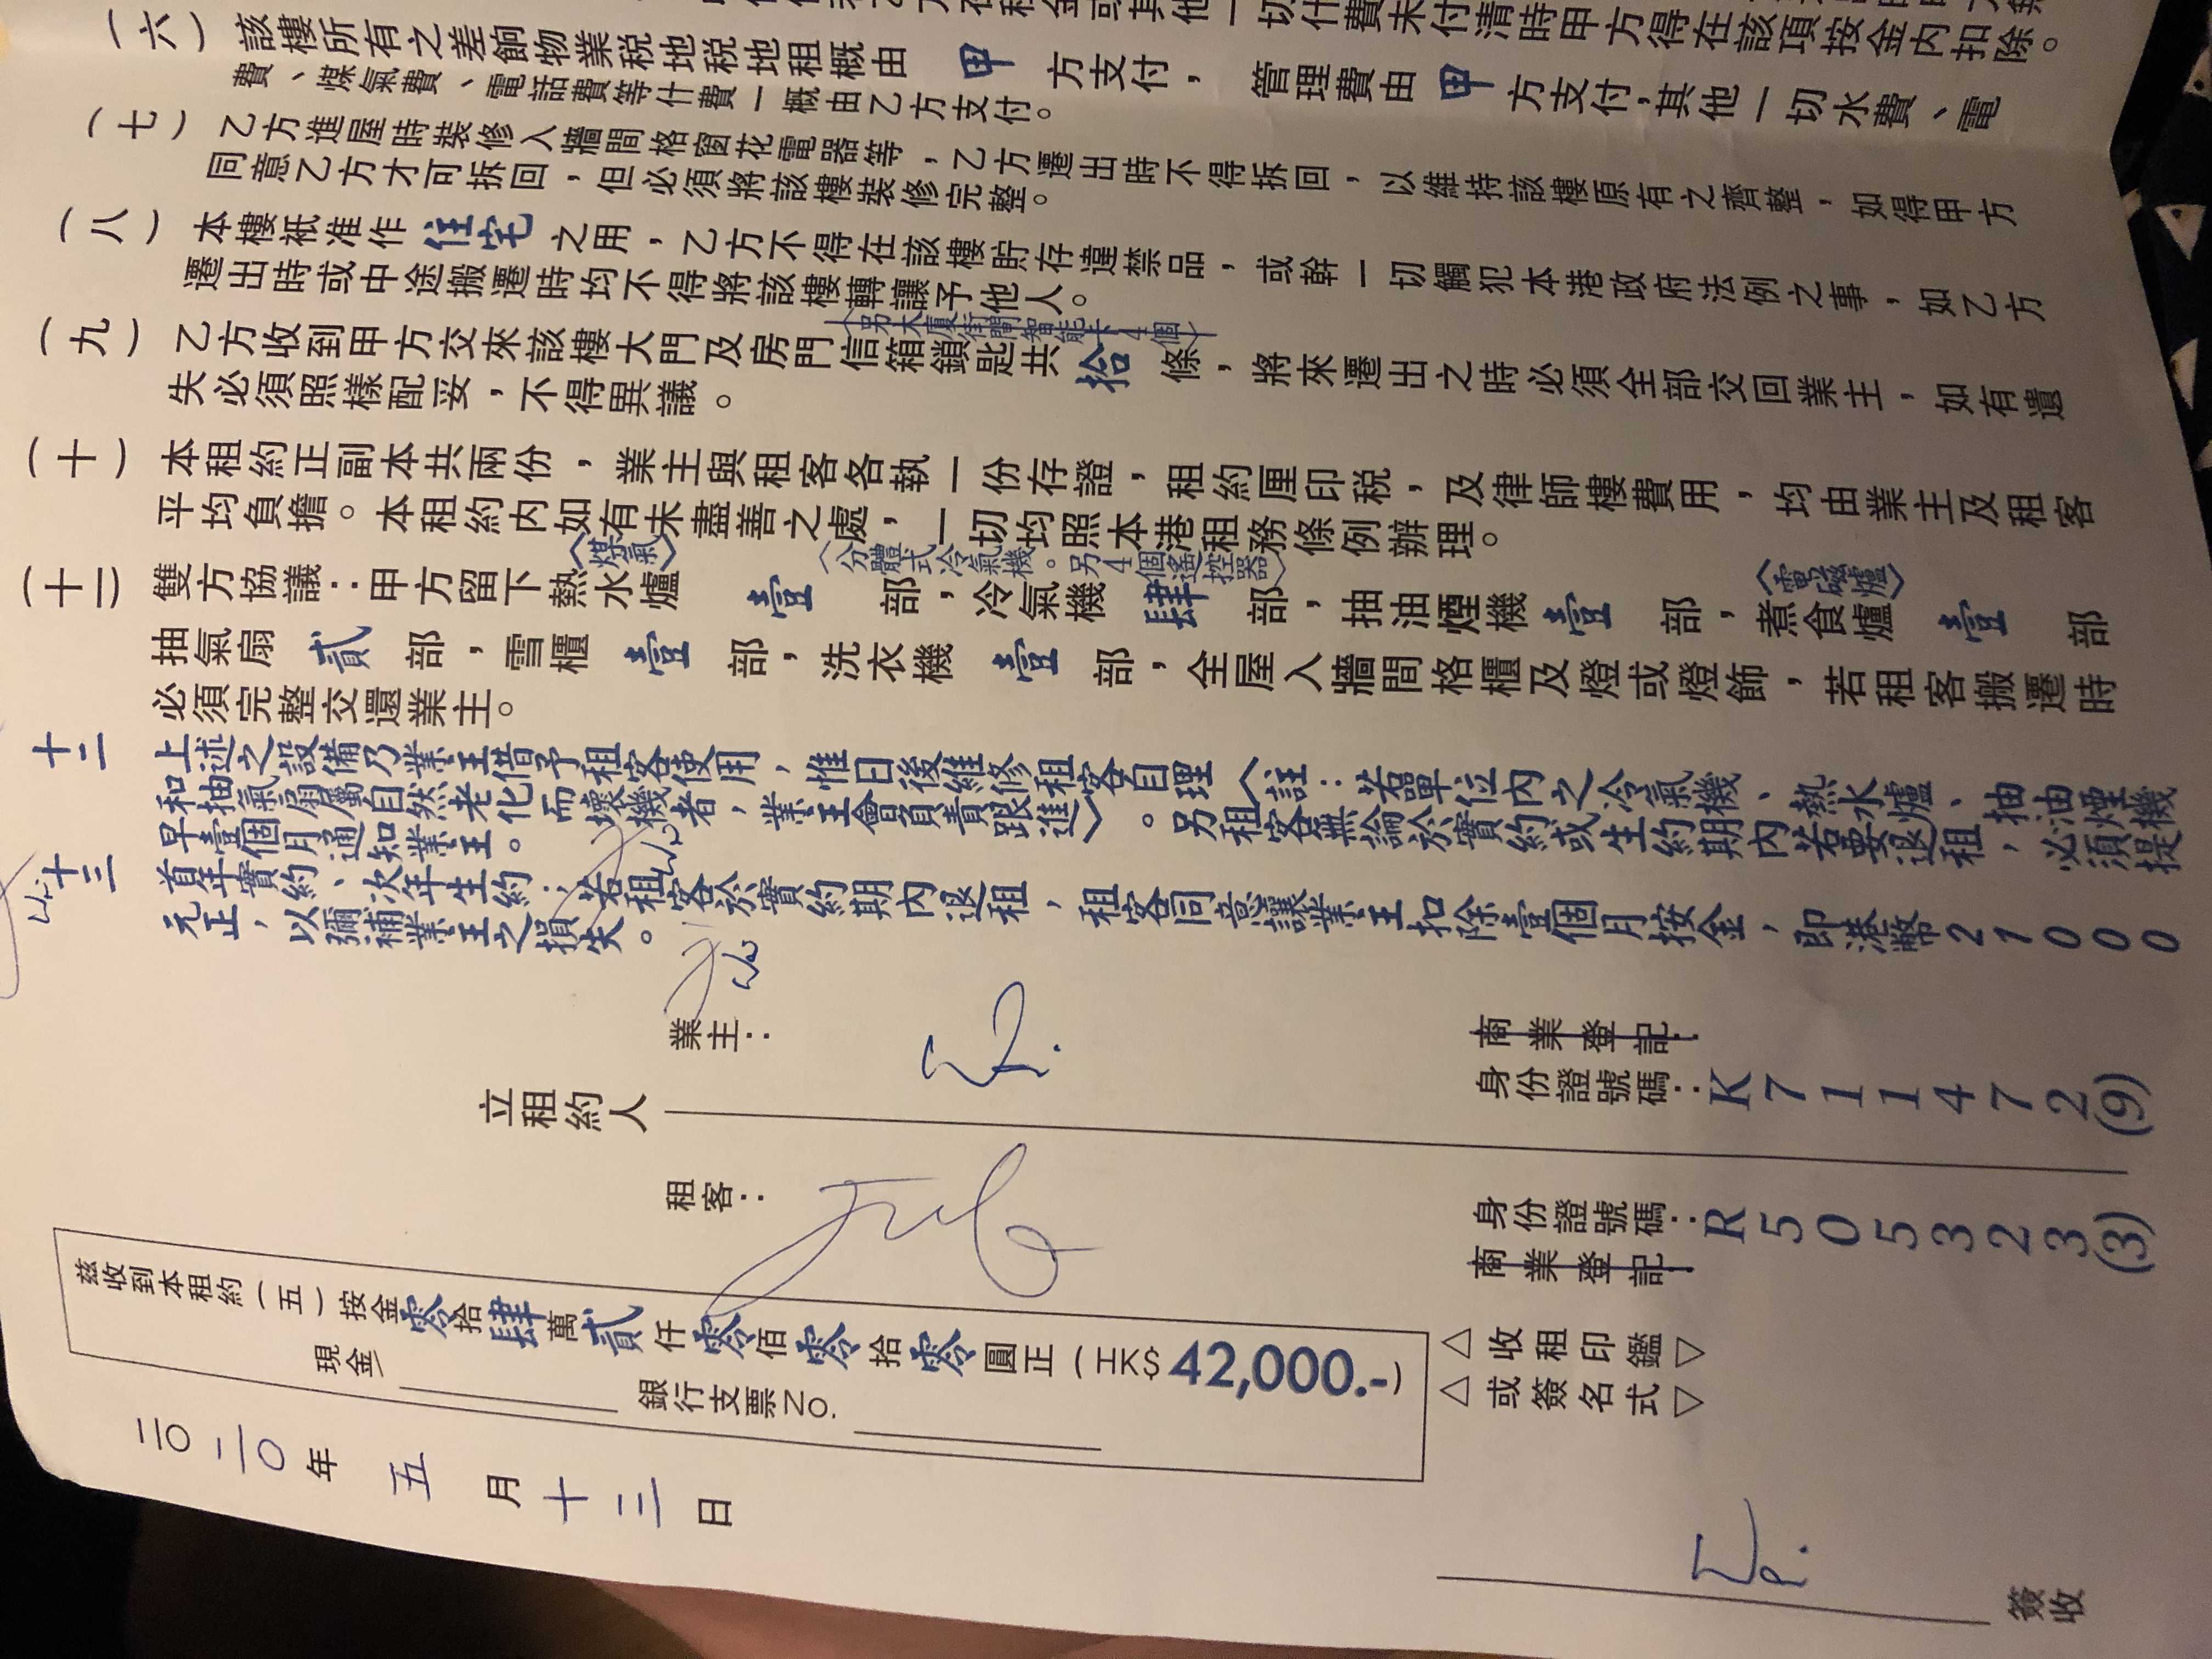 切什費未付清時甲方得在該項按金内扣除。
（六） 該樓所有之差餉物業税地税地租概由 甲 方支付， 管理費由 甲 方支付，其他一切水費、電
費、煤氣費、電話費等什費一概由乙方支付。
（七） 乙方進屋時裝修入牆間格窗花電器等，乙方遷出時不得拆回，以維持該樓原有之齊整，如得甲方
同意乙方才可拆回，但必須將該樓裝修完整。
（八） 本樓衹准作 住宅 之用，乙方不得在該樓貯存違禁品，或幹一切觸犯本港政府法例之事，如乙方
遷出時或中途搬遷時均不得將該樓轉讓予他人。
〈另大廈街閘智能卡4個〉
（九） 乙方收到甲方交來該樓大門及房門信箱鎖匙共 拾 條，將來遷出之時必須全部交回業主，如有遺
失必須照樣配妥，不得異議。
（十） 本租約正副本共兩份，業主與租客各執一份存證，租約厘印税，及律師樓費用，均由業主及租客
平均負擔。本租約内如有未盡善之處，一切均照本港租務條例辦理。
〈煤氣〉 〈分體式冷氣機。另4個遙控器〉 〈電磁爐〉
（十一） 雙方協議：甲方留下熱水爐 壹 部，冷氣機 肆 部，抽油煙機 壹 部，煮食爐 壹 部
抽氣扇 貳 部，雪櫃 壹 部，洗衣機 壹 部，全屋入牆間格櫃及燈或燈飾，若租客搬遷時
必須完整交還業主。
十二 上述之設備乃業主借予租客使用，惟日後維修租客自理〈註：若單位内之冷氣機、熱水爐、抽油煙機
和抽氣扇屬自然老化而壞機者，業主會負責跟進〉。另租客無論於實約或生約期内若要退租，必須提
早壹個月通知業主。
十三 首年實約、次年生約；若租客於實約期内退租，租客同意讓業主扣除壹個月按金，即港幣21000
元正，以彌補業主之損失。
立租約人
業主：
商業登記：
身份證號碼：K711472(9)
租客：
身份證號碼：R505323(3)
商業登記：
茲收到本租約（五）按金零拾肆萬貳仟零佰零拾零圓正（HK$42,000.-）
現金 銀行支票NO.
△收租印鑑▽
△或簽名式▽
二〇二〇年 五 月十三日
簽收